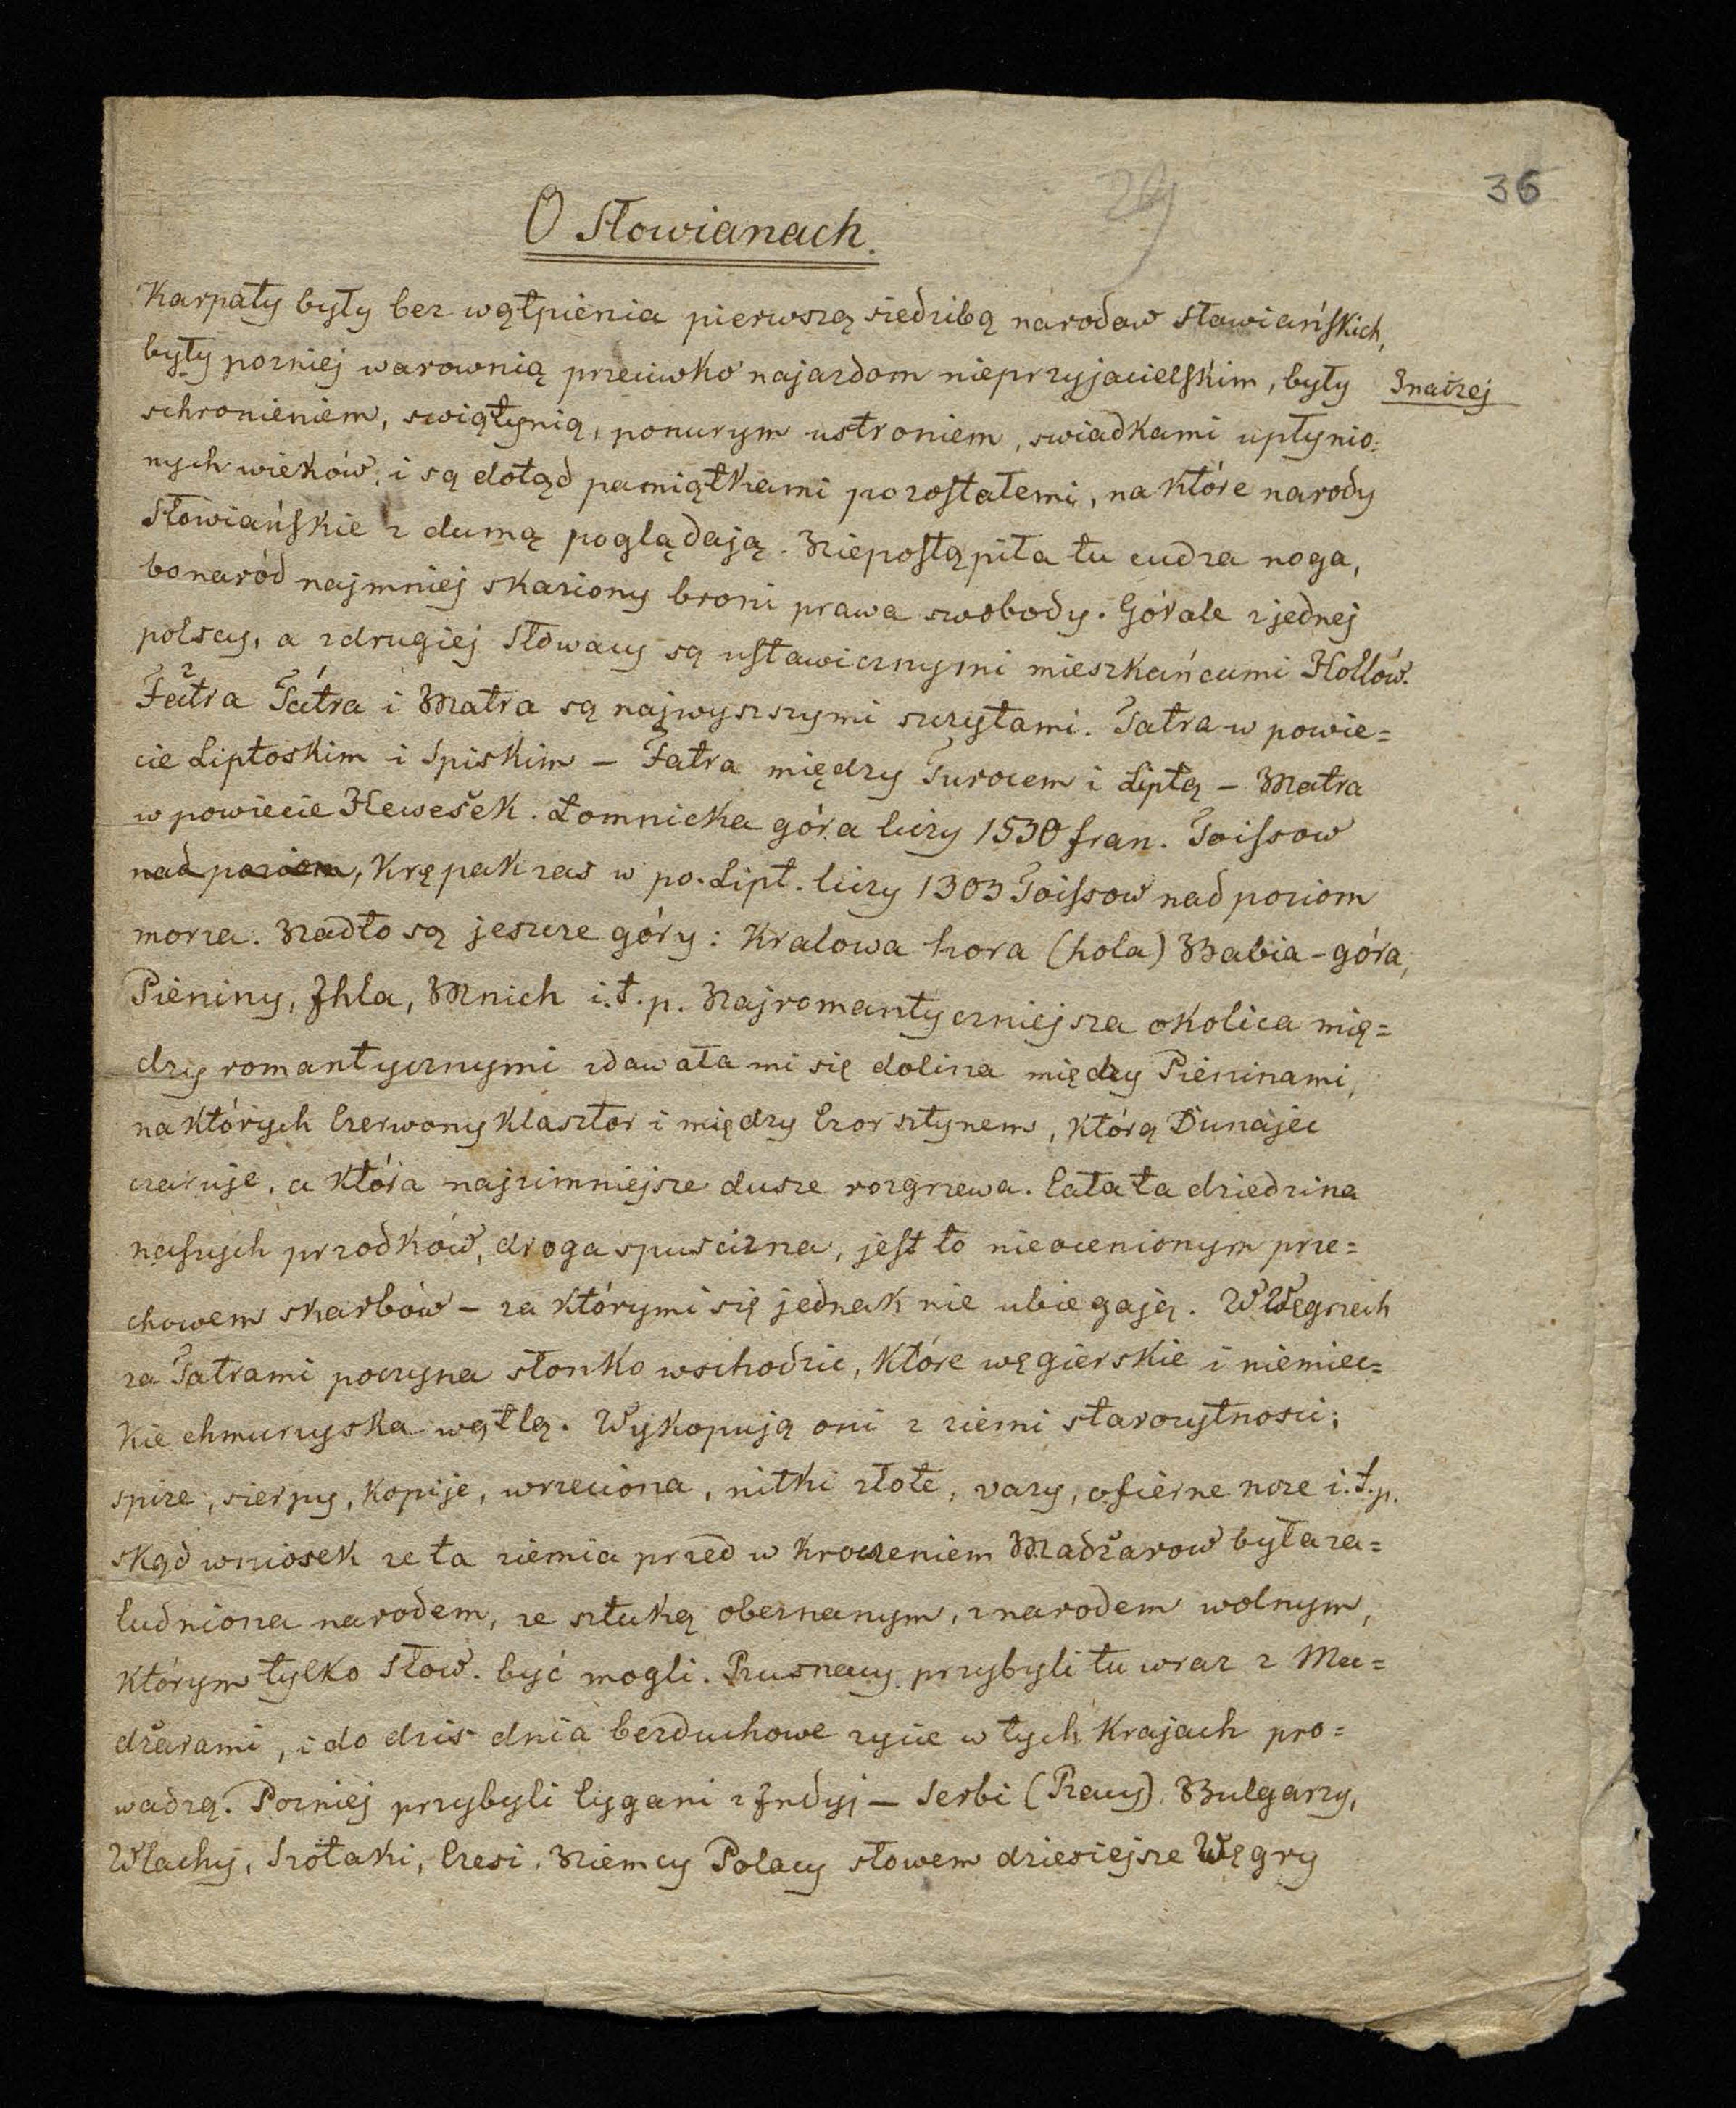 29
36
O Słowianach.
Karpaty były bez wątpienia pierwszą siedzibą narodow sławiańskich,
były pozniej warownią przeciwko najazdom nieprzyjacielskim, były
Inaczej
schronieniem, swiątynią, ponurym ustroniem, swiadkami upłynio-
nych wieków, i są dotąd pamiątkami pozostałemi, na które narody
Słowiańskie z dumą poglądają. Niepostąpiła tu cudza noga,
bo naród najmniej skażony broni prawa swobody. Górale z jednej
polscy, a z drugiej Słowacy są ustawicznymi mieszkańcami Hollów.
Fatra Tátra i Matra są najwyszszymi szczytami. Tatra w powie=
cie Liptoskim i Spiskim – Fatra między Turocem i Liptą – Matra
w powiecie Hewešek. Łomnicka góra liczy 1530 fran. Toissow
nad poziom, Krępak zas w po. Lipt. liczy 1303 Toissow nad poziom
morza. Nadto są jeszcze góry: Kralowa hora (hola) Babia-góra,
Pieniny, Ihla, Mnich i.t.p. Najromantyczniejsza okolica mię=
dzy romantycznymi zdawała mi się dolina między Pieninami,
na których Czerwony Klasztor i między Czorsztynem, którą Dunajec
czaruje, a która najzimniejsze dusze rozgrzewa. Cała ta dziedzina
naszych przodków, droga spuscizna, jest to nieocenionym prze=
chowem skarbów – za którymi się jednak nie ubiegają. W Węgrzech
za Tatrami poczyna słonko wschodzic, które węgierskie i niemiec=
kie chmurzyska wątlą. Wykopują oni z ziemi starozytnosci;
spize, sierpy, kopije, wrzeciona, nitki złote, vazy, ofierne noze i.t.p.
skąd wniosek ze ta ziemia przed wkroczeniem Madžarow była za=
ludniona narodem, ze sztuką obeznanym, z narodem wolnym,
którym tylko Słow. być mogli. Rusnacy przybyli tu wraz z Ma=
džarami, i do dzis dnia bezduchowe zycie w tych krajach pro=
wadzą. Pozniej przybyli Cygani z Indyj – Serbi (Racy) Bulgarzy,
Wlachy, Szotaki, Czesi, Niemcy Polacy słowem dziesiejsze Węgry